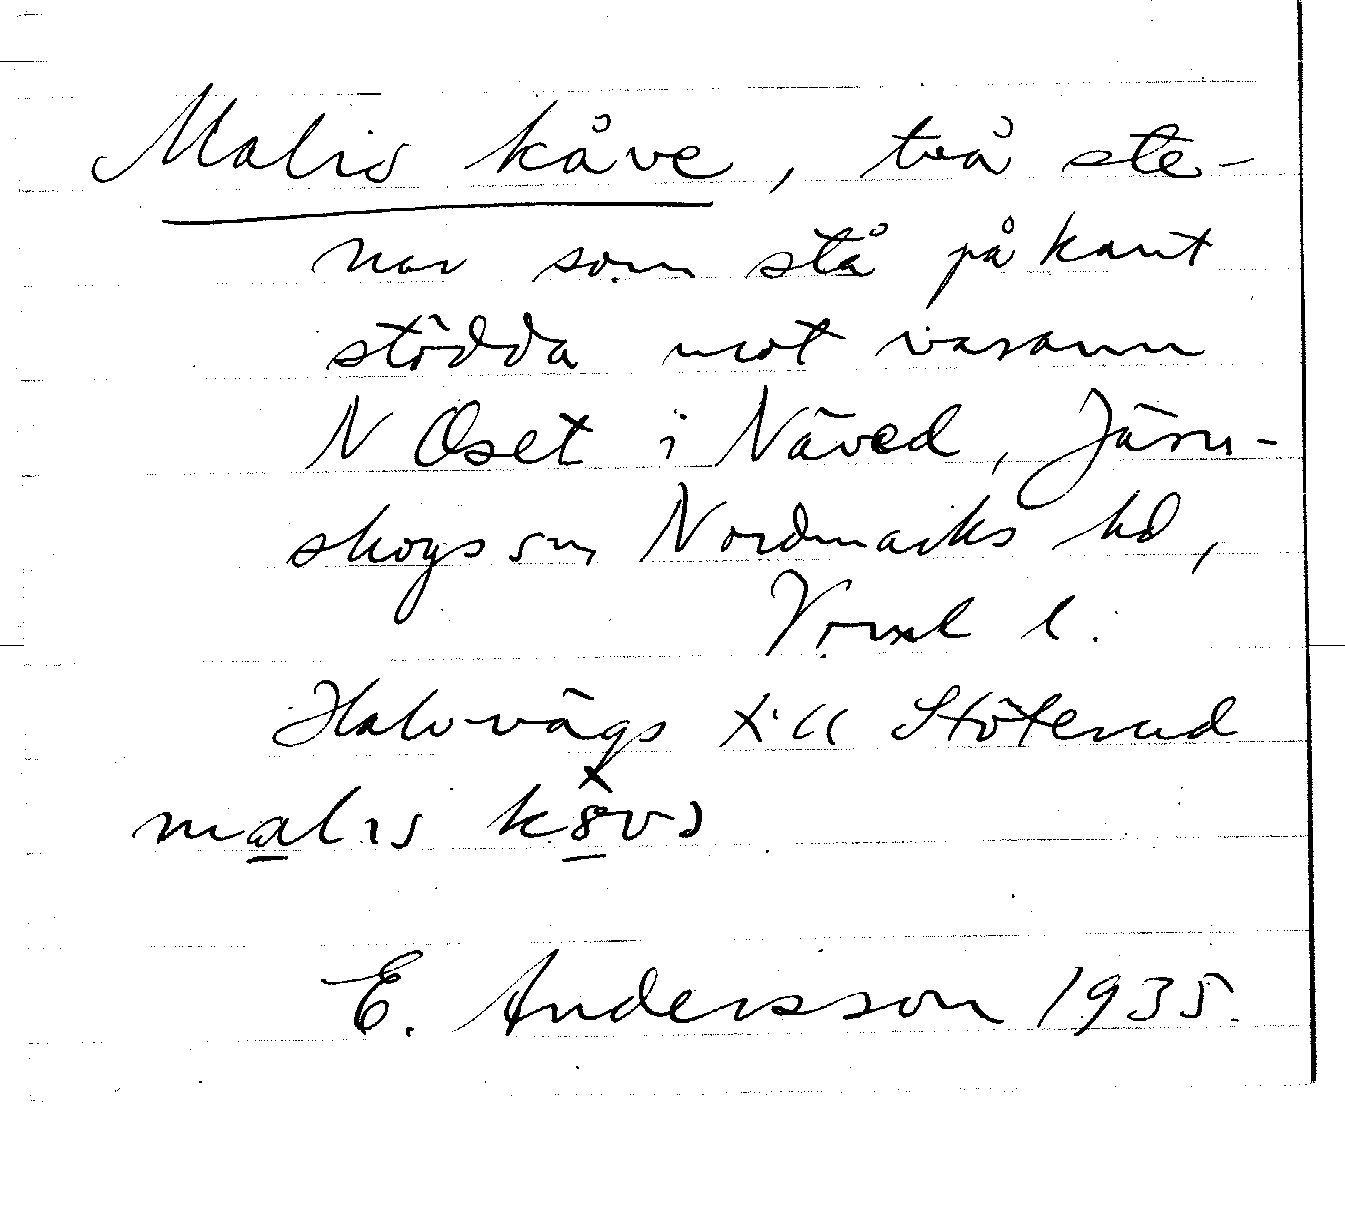 Malis kåve, två ste-
nar som stå på kant
stödda mot varann
N Oset i Näved, Järn-
skogs sn, Nordmarks hd,
Vrml l.
Halvvägs till Stöterud
malis
E. Andersson 1935.